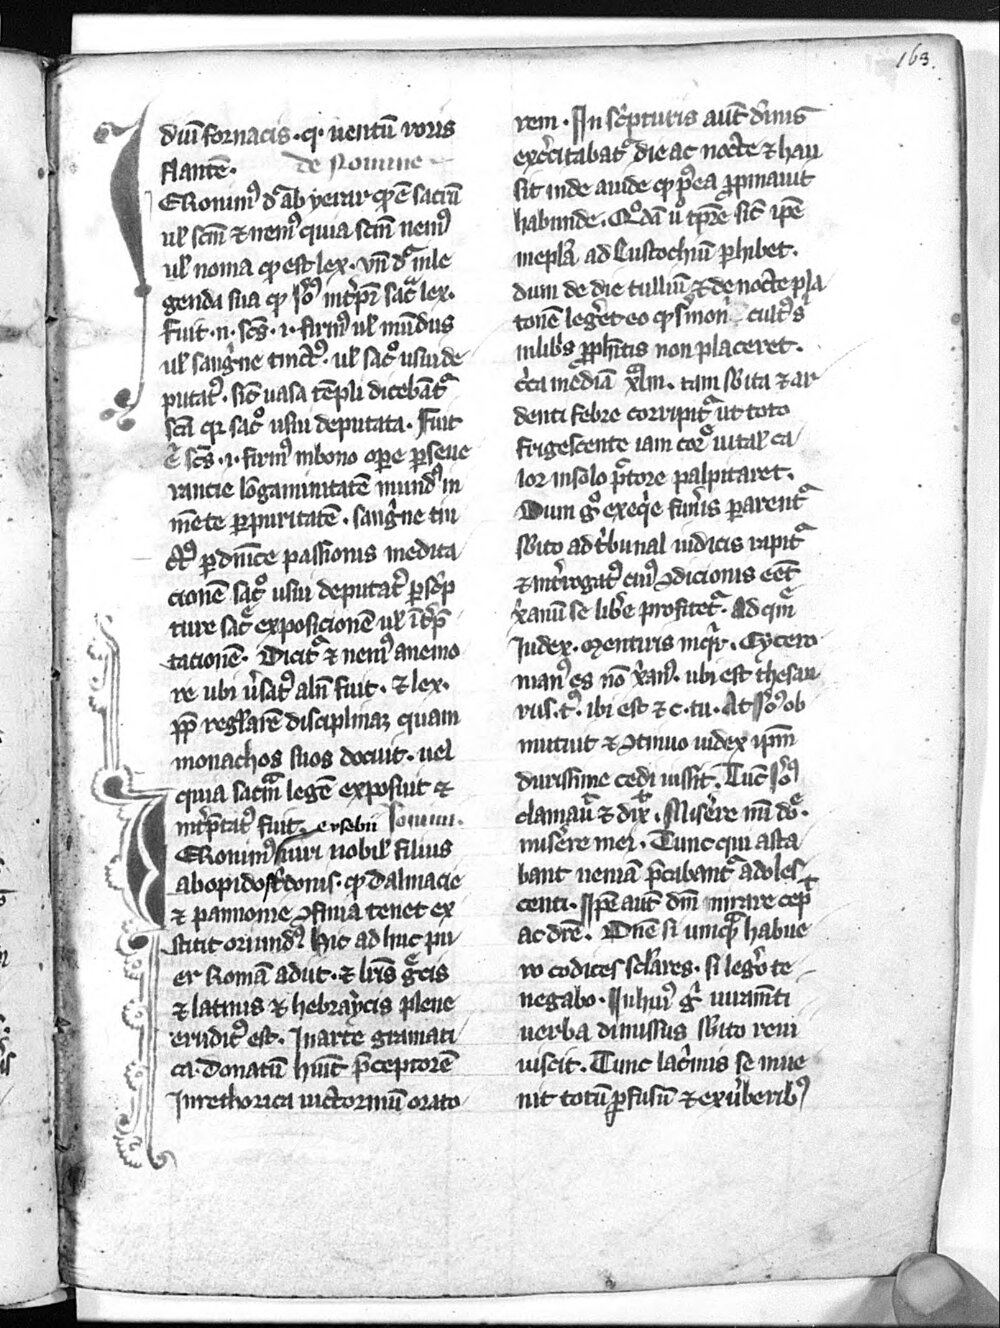 163.
diuī fornacis · q· uentum roris
flantē. de Nomine
IERonim᷒ dr̄ ab yerar qd̄ ē sacrū
ul̄ scm̄ ⁊ nem᷒ quia scm̄ nem᷒
ul̄ noma qd̄ est lex. vn̄ dr̄ in le
genda sua qd̄ Ier᷒ int̄pr̄ sac̄ lex.
Fuit .n. scs̄ .i. firm᷒ ul̄ mūdus
ul̄ sangīne tinct᷒ . ul̄ sac̄ usui de
putat᷒ . sic̄ uasa tēpli dicebant᷑
scā qr sac̄ usui deputata. Fuit
ḡ scs̄ .i. firm᷒ in bono ope ꝑ seue
rancie lōganimitatē mund᷒ in
mēte ꝑ puritatē . sangīne tin
ct᷒ ꝑ dnīce passionis medita
cionē sac̄ usui deputat᷒ ꝑ sc̄p
ture sac̄ exposicionē ul̄ int̄p̄
tacionē. Dicit᷑ ⁊ nem᷒ a nemo
re ubi ūsat᷒ aln̄ fuit. ⁊ lex.
ꝓp̄ reglarē disciplinaꝫ quam
monachos suos docuit. uel
quia sacrā legē exposuit ⁊
int̄ptat᷒ fuit. eusebii Ieronim.
IERonim᷒ uiri nobil̄ filius
ab opido stdonis. qd̄ dalmacie
⁊ pannonie ꝯfinia tenet ex
stitit oriund᷒ hic ad huc pu
er Romā adiit. ⁊ lr̄is gr̄cis
⁊ latinis ⁊ hebraycis plene
erudit᷒ est. In arte gramati
ca donatū hūit p̄ceptorē
In rethorica uictorinū orato
rem. In sc̄pturis aut̄ diuīs
exc̄citabat᷑ die ac nocte ⁊ hau
sit inde auide qd̄ p̄ea ꝓpinauit
habunde. Qd̄ā ū tp̄re sic̄ ip̄e
in epl̄a ad Eustochiū ꝑhibet.
dum de die tulliū ⁊ de nocte pla
tonē leget eo qd̄ sermo incult᷒
in libr̄s ꝓphētis non placeret.
cīca mediā xlm̄. tam sbita ⁊ ar
denti febre corripit᷑ ut toto
frigescente iam corꝑe uital̄ ca
lor in solo pectore palpitaret.
Dum ḡ exeqīe funīs ꝑarent᷑
sbito ad tribunal iudicis rapit᷑
⁊ int̄rogat᷒ cui᷒ ꝯdicionis eēt
xanū se libe profitet᷑. Ad qm̄
Iudex. Mentiris inq̄t. Cycero
nian᷒ es nō xan᷒. ubi est thesau
rus t᷒. ibi est ⁊ c. tu. At Ier᷒ ob
mutuit ⁊ ꝯtinuo iudex ip̄m
durissime cedi iussit. Tūc Ier᷒
clamauit ⁊ dix̄. Misere m̄ dn̄e.
misere mei. Tunc qui asta
bant ueniā p̄cabant᷑ adoles
centi. Ip̄e aut̄ dm̄ iurare cep̄
ac dr̄e. Dn̄e si umq̄ habue
ro codices sclares. si legero te
negabo. In hui᷒ ḡ iuramti
uerba dimissus sbito reui
uiscit. Tunc lac̄mis se inue
nit totū ꝑfusū ⁊ ex ūberib᷒